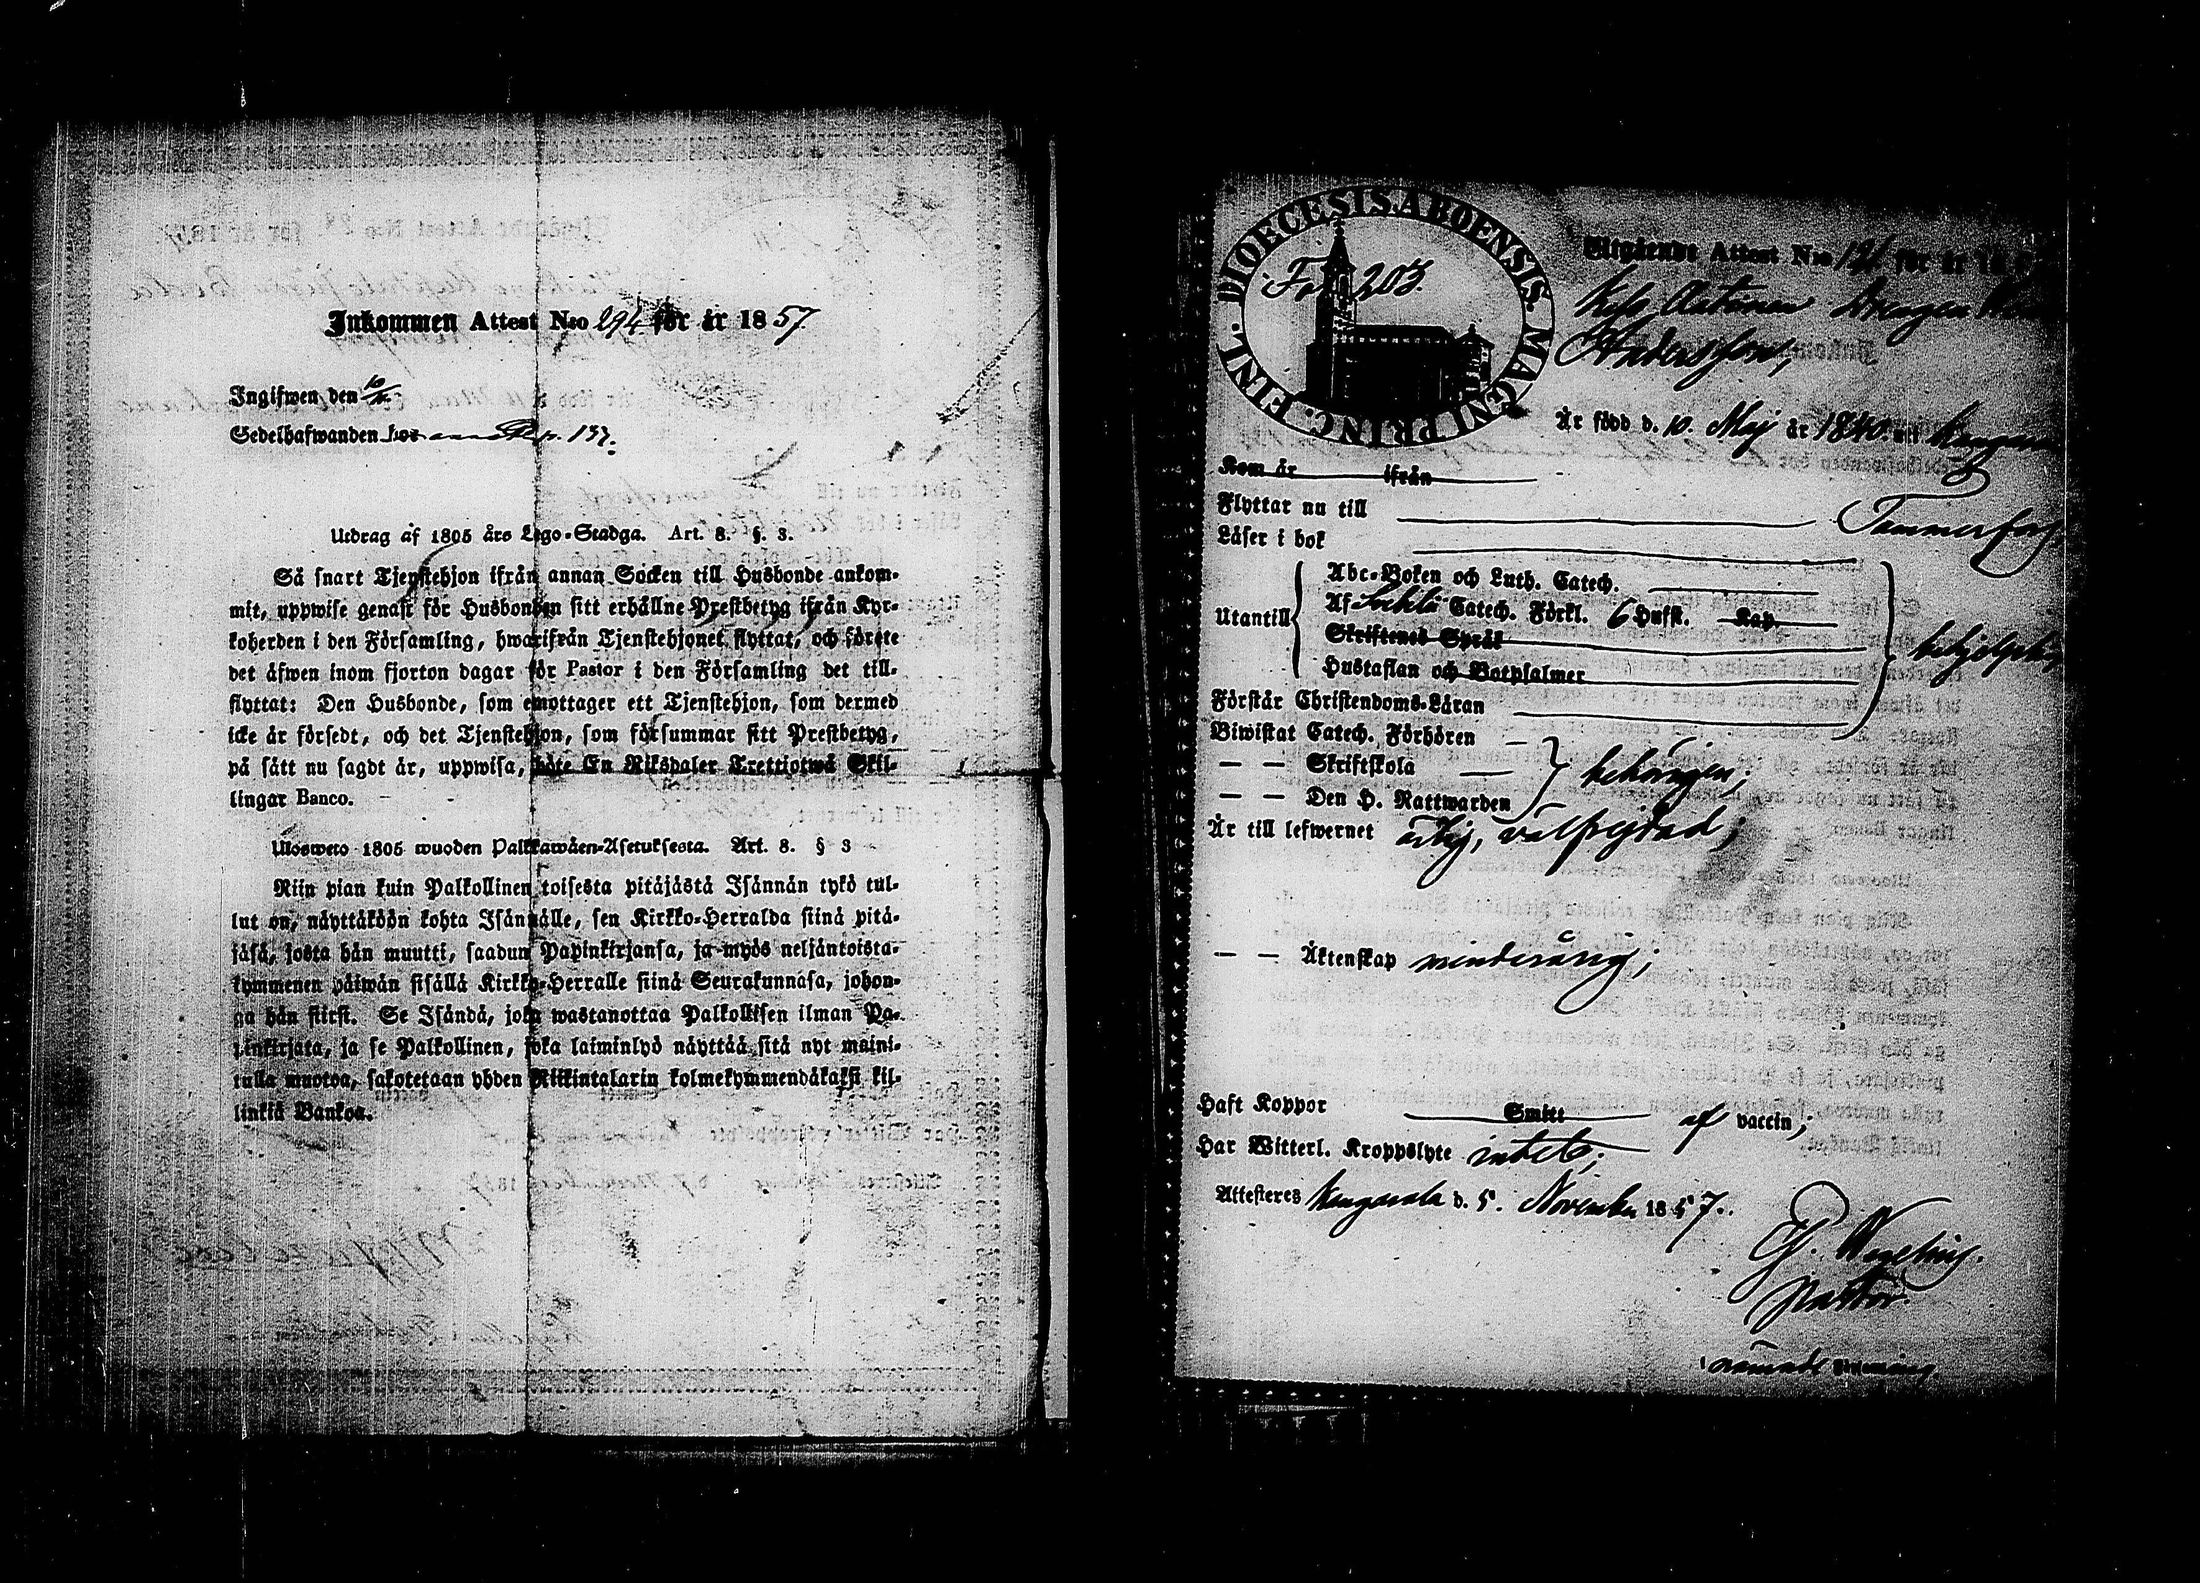 Inkommen Attest N:o 294 för år 1857.
Ingifwen den 10/11
Sedelhafwanden hos p. 137.
Utdrag af 1805 års Lego-Stadga. Art. 8. §. 3.
Så snart Tjenstehjon ifrån annan Socken till Husbonde ankom-
mit, uppwise genast för Husbonden sitt erhållne Prestbetyg ifrån Kyr-
koherden i den Församling, hwarifrån Tjenstehjonet flyttat, och förete
det äfwen inom fjorton dagar för Pastor i den Församling det till-
flyttat: Den Husbonde, som emottager ett Tjenstehjon, som dermed
icke är försedt, och det Tjenstehjon, som försummar sitt Prestbetyg,
på sätt nu sagdt är, uppwisa, böte En Riksdaler Trettiotwå Skil-
lingar Banco.
Ulosweto 1805 wuoden Palkkawäen-Asetuksesta. Art. 8. § 3
Niin pian kuin Palkollinen toisesta pitäjästä Isännän tykö tul-
lut on, näyttäköön kohta Isännälle, sen Kirkko-Herralda siinä pitä-
jäsä, josta hän muutti, saadun Papinkirjansa, ja myös neljäntoista-
kymmenen päiwän sisällä Kirkko-Herralle siinä Seurakunnasa, johon-
ga hän siirsi. Se Isändä, joka wastanottaa Palkollisen ilman Pa-
pinkirjata, ja se Palkollinen, joka laiminlyö näyttää sitä nyt maini-
tulla muotoa, sakotetaan yhden Riikintalarin kolmekymmendäkaksi kil-
linkiä Bankoa.
DIOECESIS ABOENSIS. MAGNI PRINC. FINL.
Fol. 203.
Utgående Attest N:o 121 för år 18
Andersson,
Är född d. 10. Maj år 1840. uti Kangasa
Kom år ifrån
Flyttar nu till Tammerfors
Läser i bok
Utantill
Abc-Boken och Luth. Catech.
Af Catech. Förkl. 6 Hufst. Kap.
Skriftenes Språk
Hustaflan och Botpsalmer
behjelpligt
Förstår Christendoms-Läran
Biwistat Catech. Förhören
— — Skriftskola
— — Den H. Nattwarden
behörigen;
Är till lefwernet ärlig, välfrejdad;
— — Äktenskap minderårig;
Haft Koppor Smitt af vaccin;
Har Witterl. Kroppslyte intet;
Attesteres Kangasala d. 5. November 1857.
Pastor.